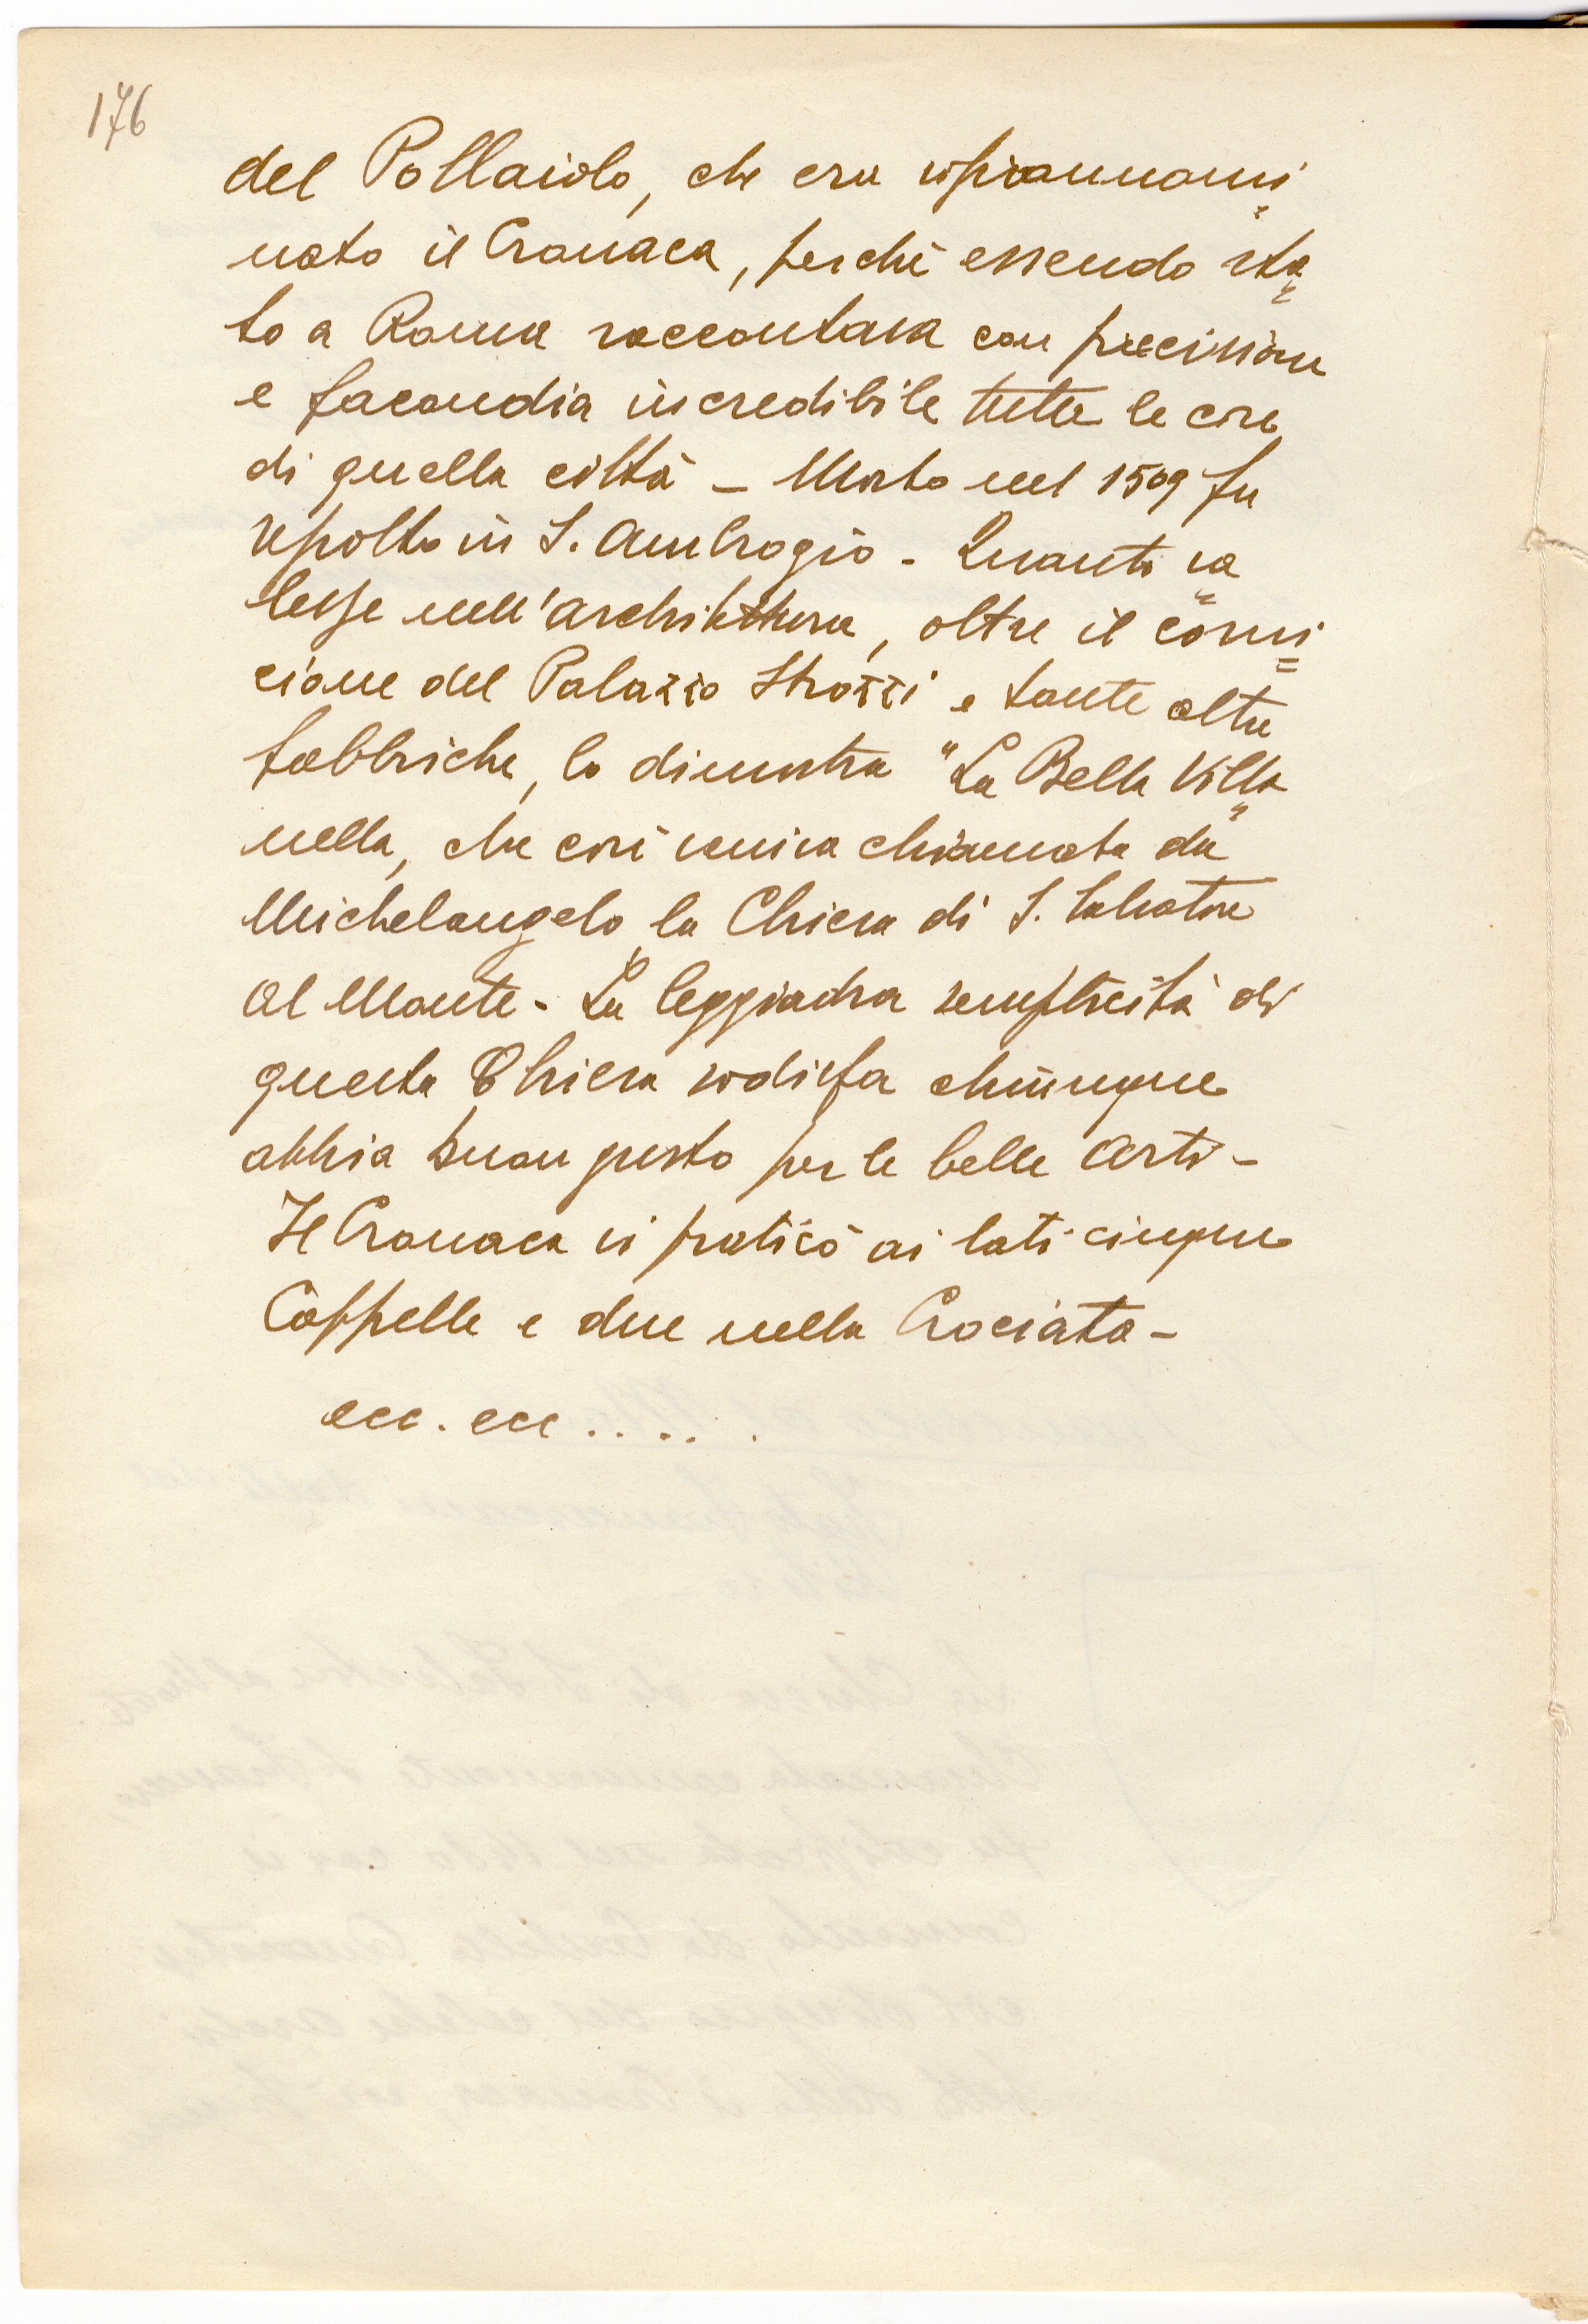 176
del Pollaiolo, che era sopranomi
nato il Cronaca, perchè essendo sta=
to a Roma raccontava con precisione
e facondia incredibile tutte le cose
di quella città - Morto nel 1509 fu
sepolto in S. Ambrogio - Quanto va=
lesse nell'architettura, oltre il corni=
cione del Palazzo Strozzi e tante altre
fabbriche, lo dimostra "La Bella Villa
nella", che così veniva chiamata da
Michelangelo la Chiesa di S. Salvatore
al Monte - La leggiadra semplicità di
questa Chiesa sodisfa chiunque
abbia buon gusto per le belle Arti -
Il Cronaca vi praticò ai lati cinque
Cappelle e due nella Crociata -
ecc. ecc .....